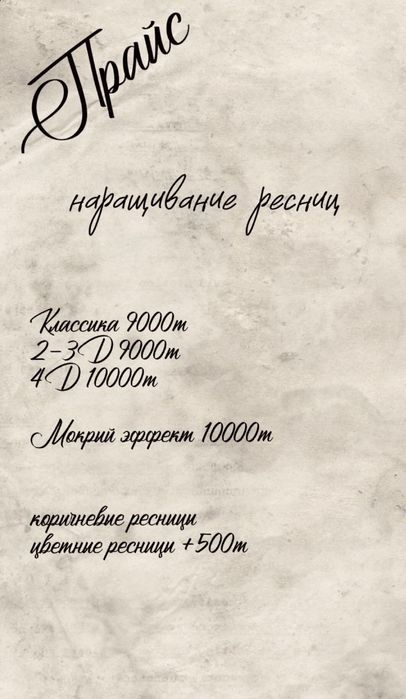 Прайс
наращивание ресниц
Классика 9000т
2-3 D 9000т
4 D 10000т
Мокрий эффект 10000т
коричневие ресници
цветние ресници +500т